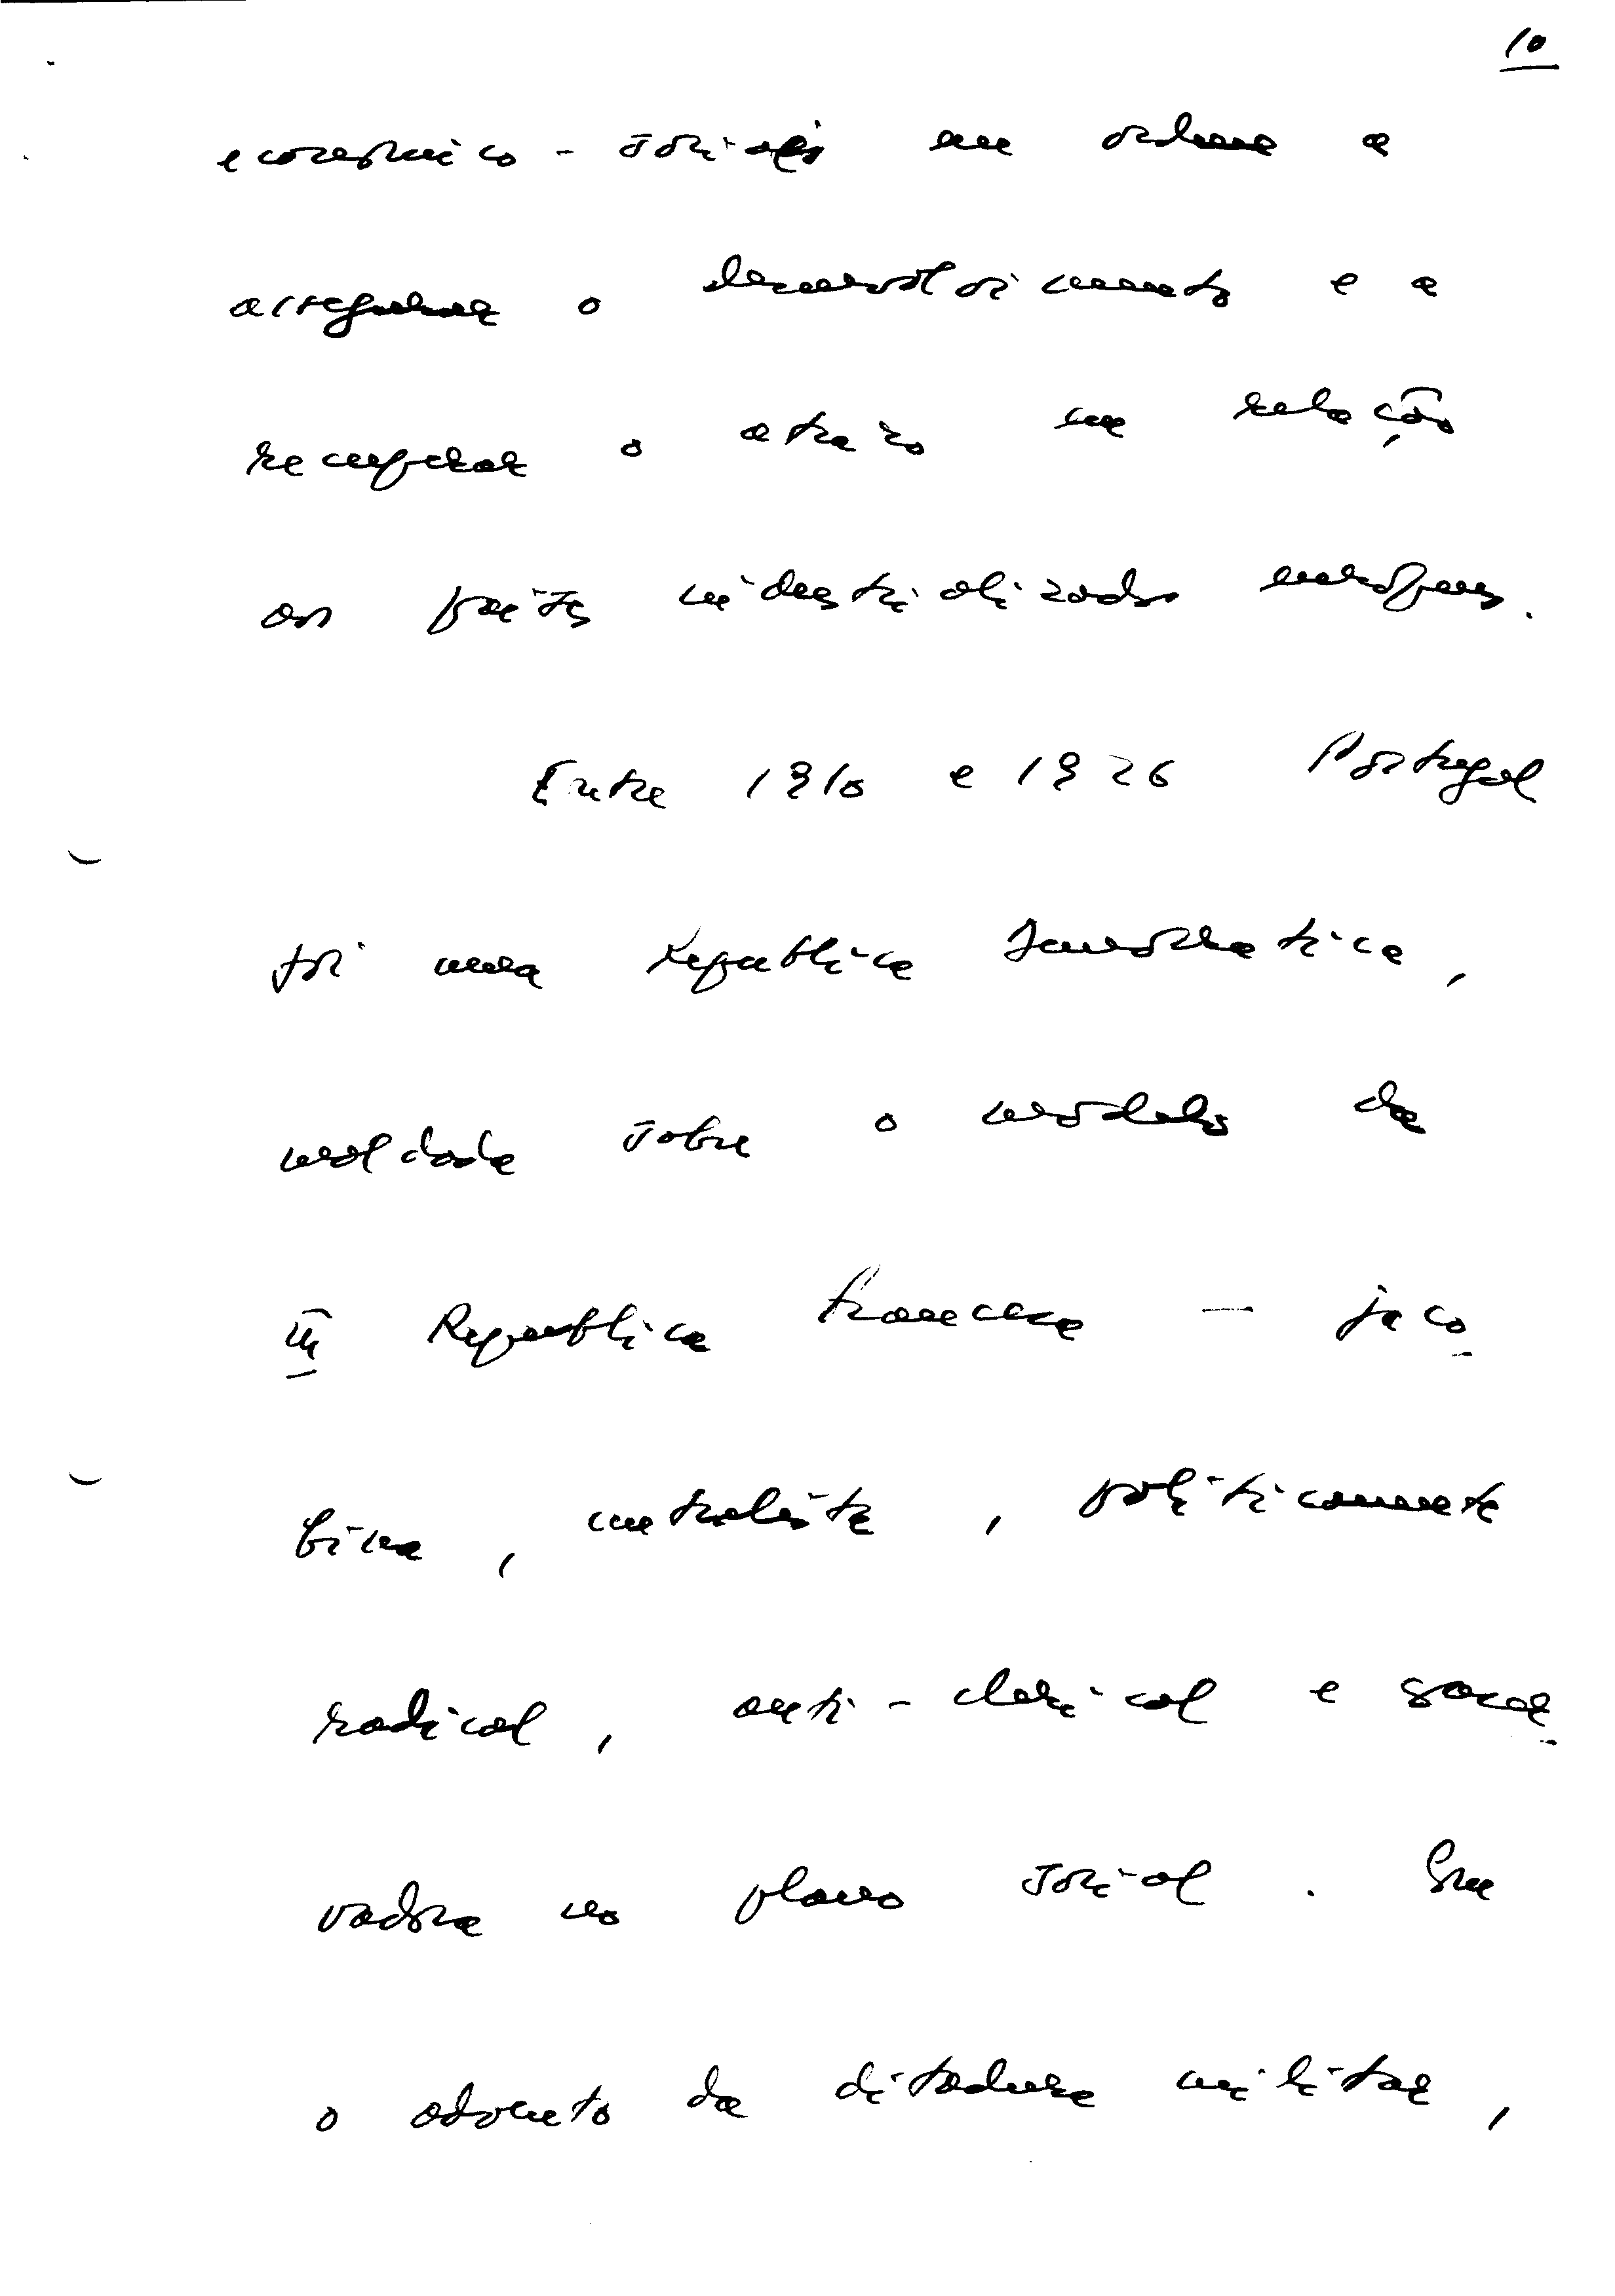 10
economico-sociais em ordem a
assegurar o desenvolvimento e a
recuperar o atrazo em relação
aos paises industrializados europeus.
Entre 1910 e 1926 Portugal
foi uma Republica democratica,
moldada sobre o modelo da
III Republica francesa - jaco
bina, centralista, politicamente
radical, anti-clerical e conser
vadora no plano social. Com
o advento da ditadura militar,